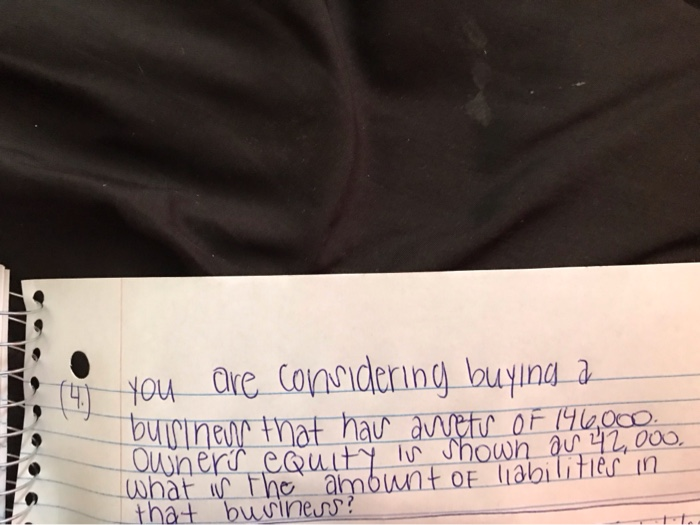 (4.) you are considering buying a
business that has assets of 146,000.
Owner's equity is shown as 42,000.
what is the amount of liabilities in
that business?